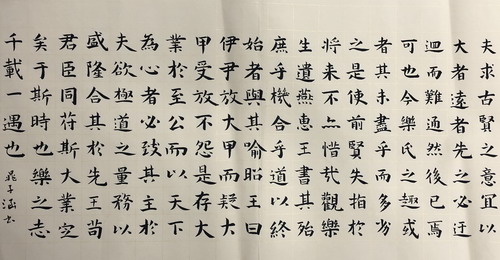 夫求古賢之意宜以
大者遠者先之必迂
迴而難通然後已焉
可也今樂氏之趣或
者其未盡乎而多劣
之是使前賢失指於
将来不亦惜哉觀樂
生遺燕惠王書其殆
庶乎機合乎道以終
始者與其喻昭王曰
伊尹放大甲而疑大
甲受放不怨是存大
業於至公而以天下
為心者必致其主於
夫欲極道之量務以
盛隆合其於先王苟
君臣同苻斯大業定
矣于斯時也樂之志
千載一遇也
子涵书